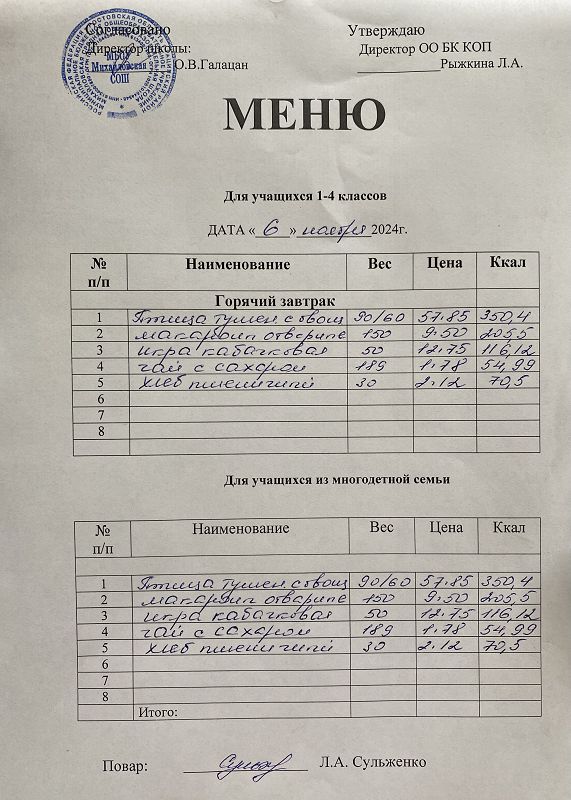 Согласовано Утверждаю
Директор школы: Директор ОО БК КОП
О.В.Галацан Рыжкина Л.А.
МБОУ
Михайловская
СОШ
МЕНЮ
Для учащихся 1-4 классов
ДАТА «6» ноября 2024г.
№ п/п Наименование Вес Цена Ккал
Горячий завтрак
1 Птица тушен. с овощ 90/60 57.85 350,4
2 макароны отварные 150 9.50 205,5
3 икра кабачковая 50 12.75 116,12
4 чай с сахаром 189 1.78 54,99
5 хлеб пшеничный 30 2.12 70,5
6
7
8
Для учащихся из многодетной семьи
№ п/п Наименование Вес Цена Ккал
1 Птица тушен. с овощ 90/60 57.85 350,4
2 макароны отварные 150 9.50 205,5
3 икра кабачковая 50 12.75 116,12
4 чай с сахаром 189 1.78 54,99
5 хлеб пшеничный 30 2.12 70,5
6
7
8
Итого:
Повар: Л.А. Сульженко